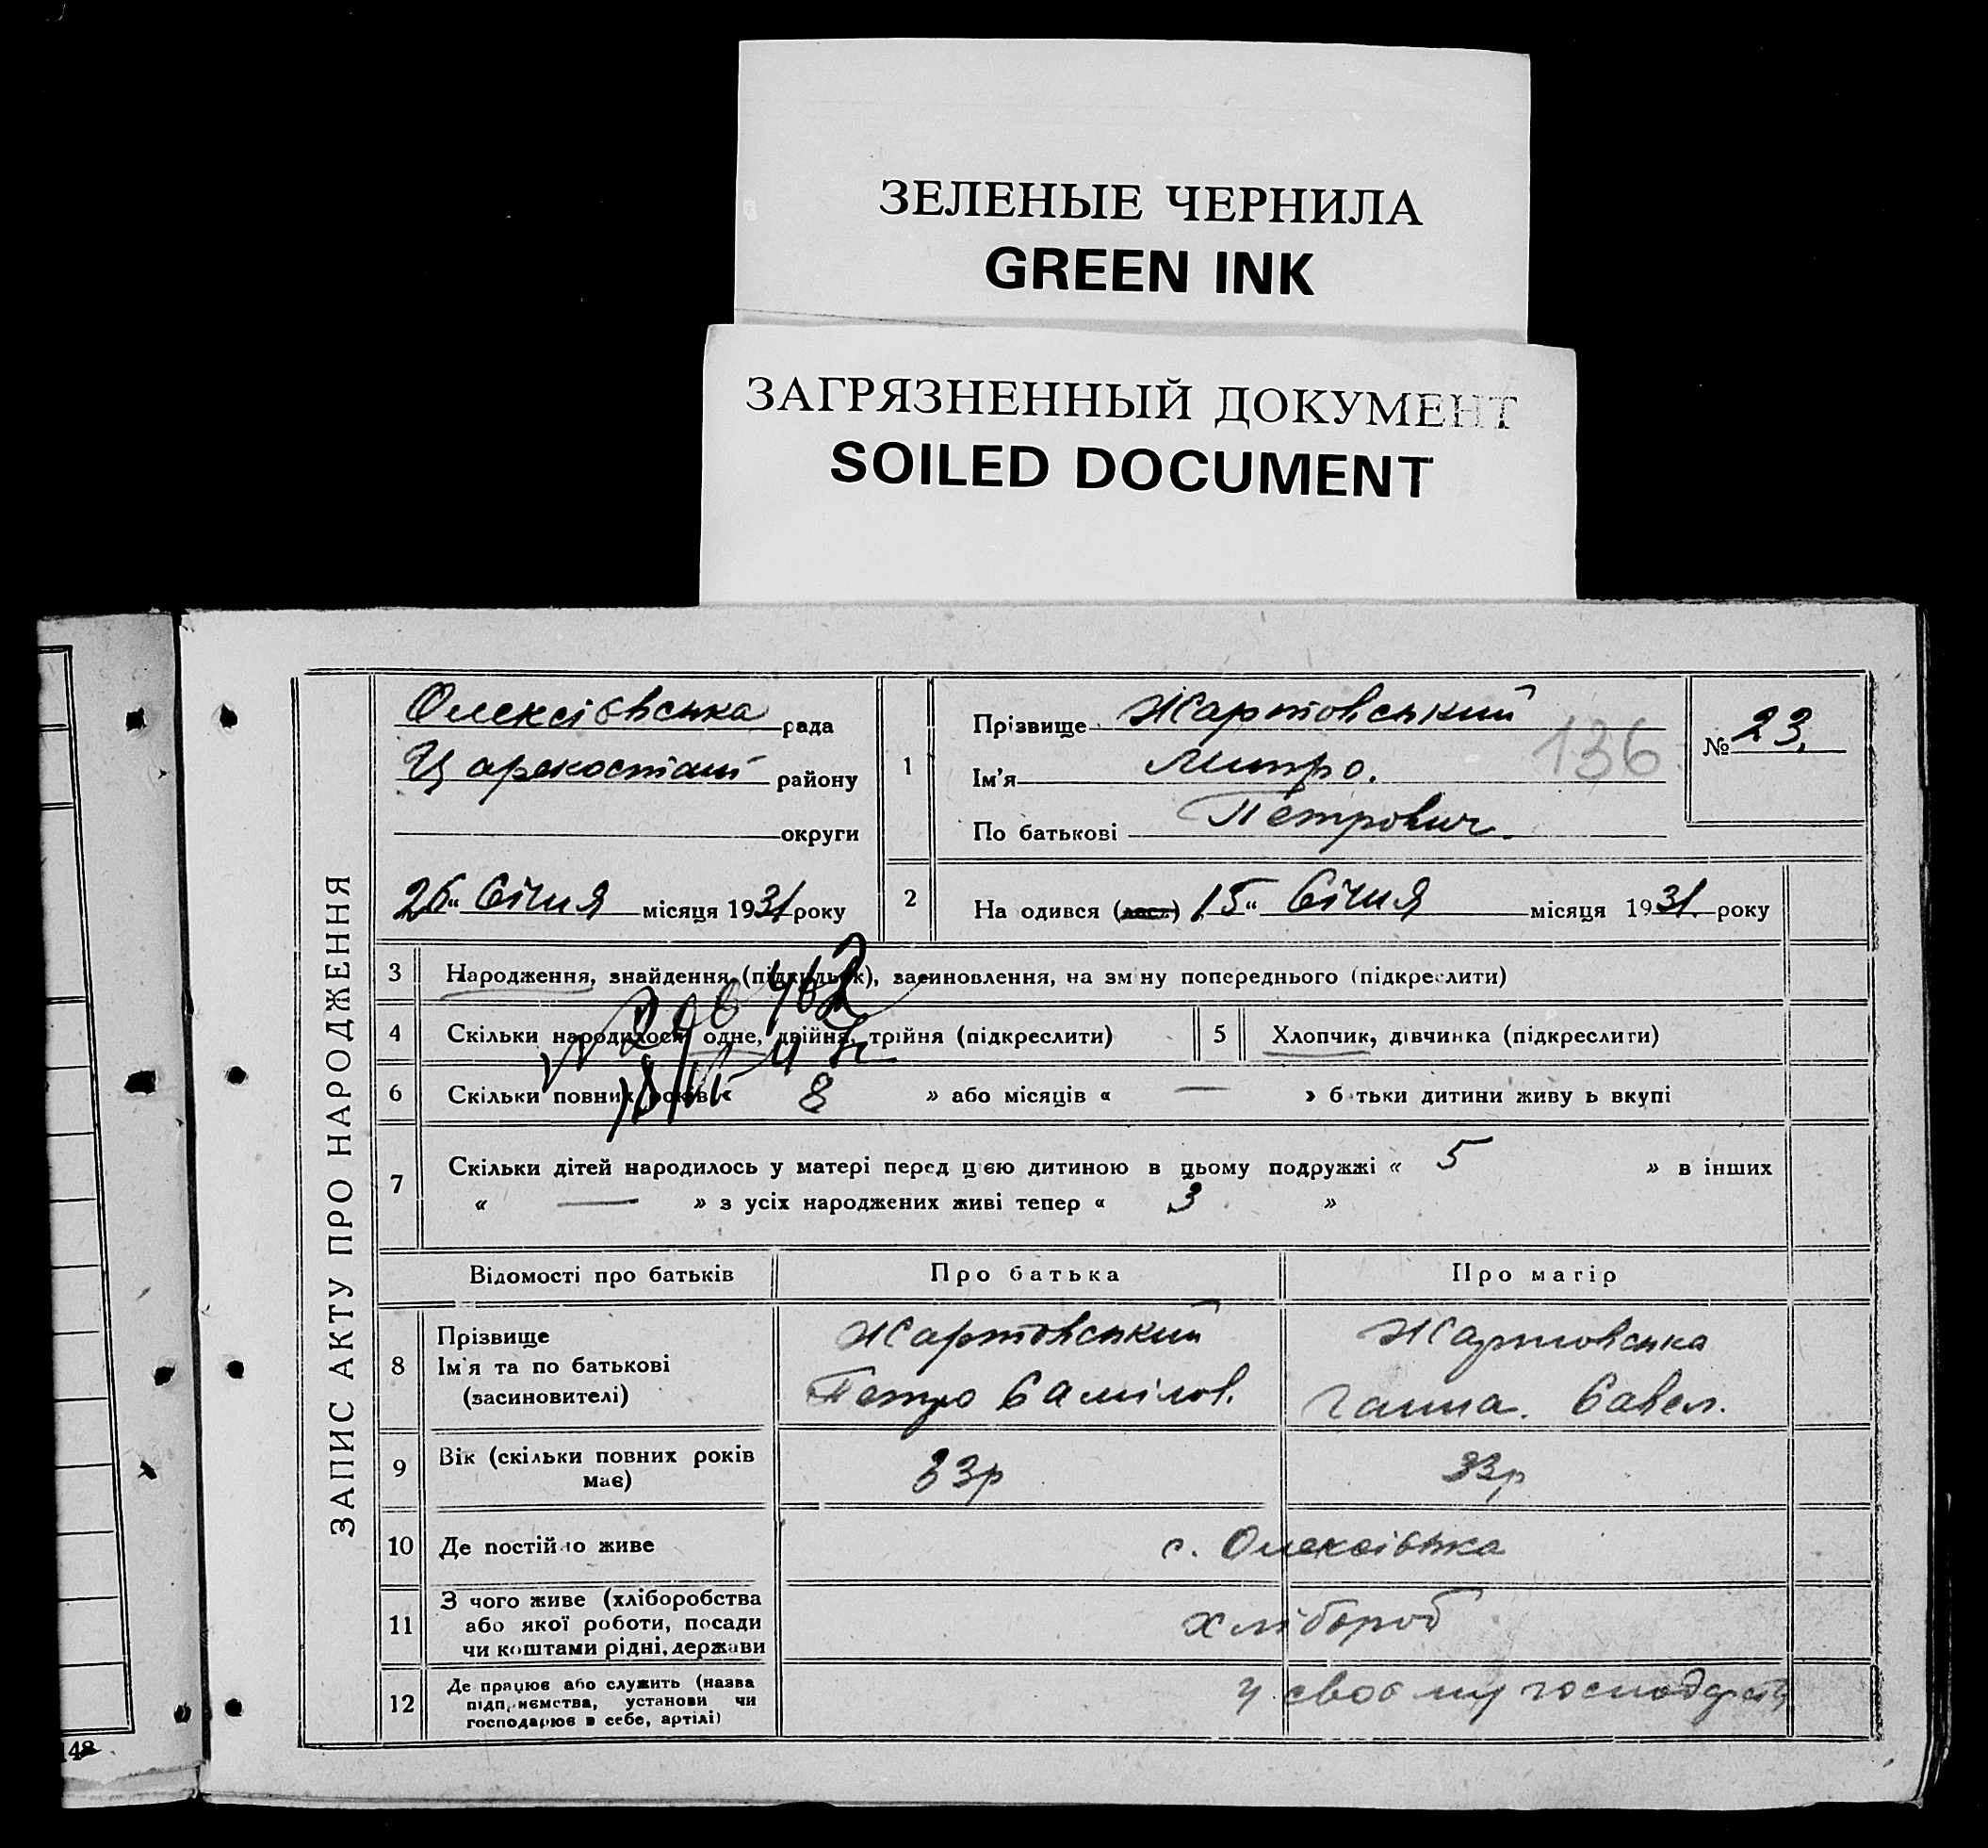 ЗЕЛЕНЫЕ ЧЕРНИЛА
GREEN INK
ЗАГРЯЗНЕННЫЙ ДОКУМЕНТ
SOILED DOCUMENT
ЗАПИС АКТУ ПРО НАРОДЖЕННЯ
Олексіївська рада
району
округи
26 " Січня місяця 1931 року
1 Прізвище Жартовський
Ім'я Митро.
По батькові Петрович
136
№ 23.
2 На одився (лась) 15 " Січня місяця 1931 року
3 Народження, знайдення (підкидьок), засиновлення, на зміну попереднього (підкреслити)
4 Скільки народилося одне, двійня, трійня (підкреслити)
5 Хлопчик, дівчинка (підкреслити)
6 Скільки повних років « 8 » або місяців « — » б тьки дитини живу ь вкупі
7 Скільки дітей народилось у матері перед цією дитиною в цьому подружжі « 5 » в інших
« — » з усіх народжених живі тепер « 3 »
Відомості про батьків Про батька Про матір
8 Прізвище
Ім'я та по батькові
(засиновителі)
Жартовський
Петро Самілов.
Жартовська
Ганна. Савел.
9 Вік (скільки повних років
має)
33р 33р
10 Де постійно живе с. Олексіівка
11 З чого живе (хліборобства
або якої роботи, посади
чи коштами рідні, держави
хлібороб
12 Де працює або служить (назва
підприємства, установи чи
господарює в себе, артілі)
у своєму
148